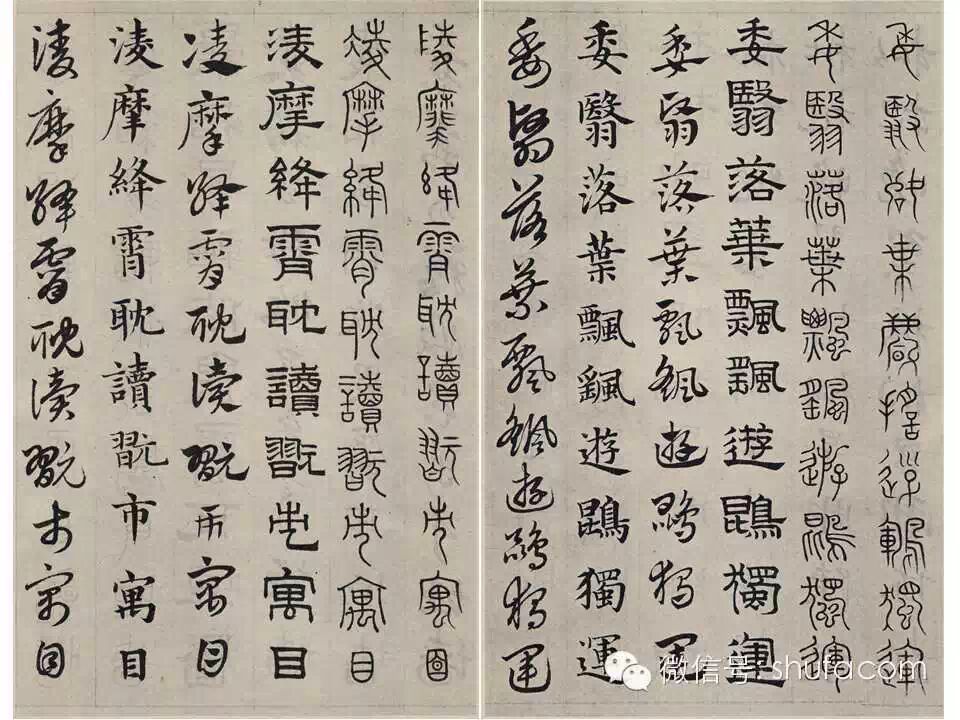 委翳落葉飄颻遊鵾獨運
委翳落葉飄颻遊鵾獨運
委翳落葉飄颻遊鵾獨運
委翳落葉飄颻遊鵾獨運
委翳落葉飄颻遊鵾獨運
委翳落葉飄颻遊鵾獨運
凌摩絳霄耽讀翫市寓目
凌摩絳霄耽讀翫市寓目
凌摩絳霄耽讀翫市寓目
凌摩絳霄耽讀翫市寓目
凌摩絳霄耽讀翫市寓目
凌摩絳霄耽讀翫市寓目
微信号: shufacom